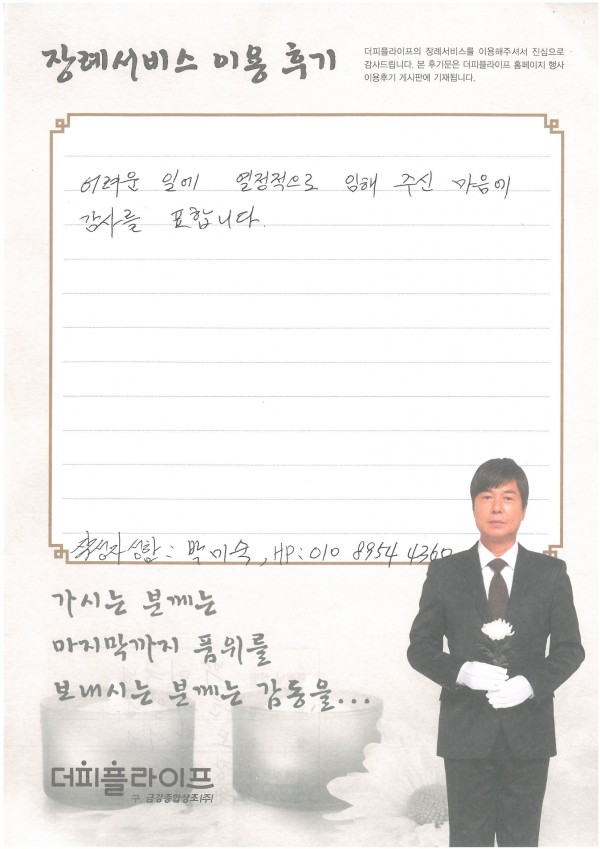 장례서비스 이용 후기
더피플라이프의 장례서비스를 이용해주셔서 진심으로
감사드립니다. 본 후기문은 더피플라이프 홈페이지 행사
이용후기 게시판에 기재됩니다.
어려운 일에 열정적으로 임해 주신 마음에
감사를 표합니다.
작성자성함: 박미숙, HP: 010 8954 4360
가시는 분께는
마지막까지 품위를
보내시는 분께는 감동을...
더피플라이프
구. 금강종합상조(주)